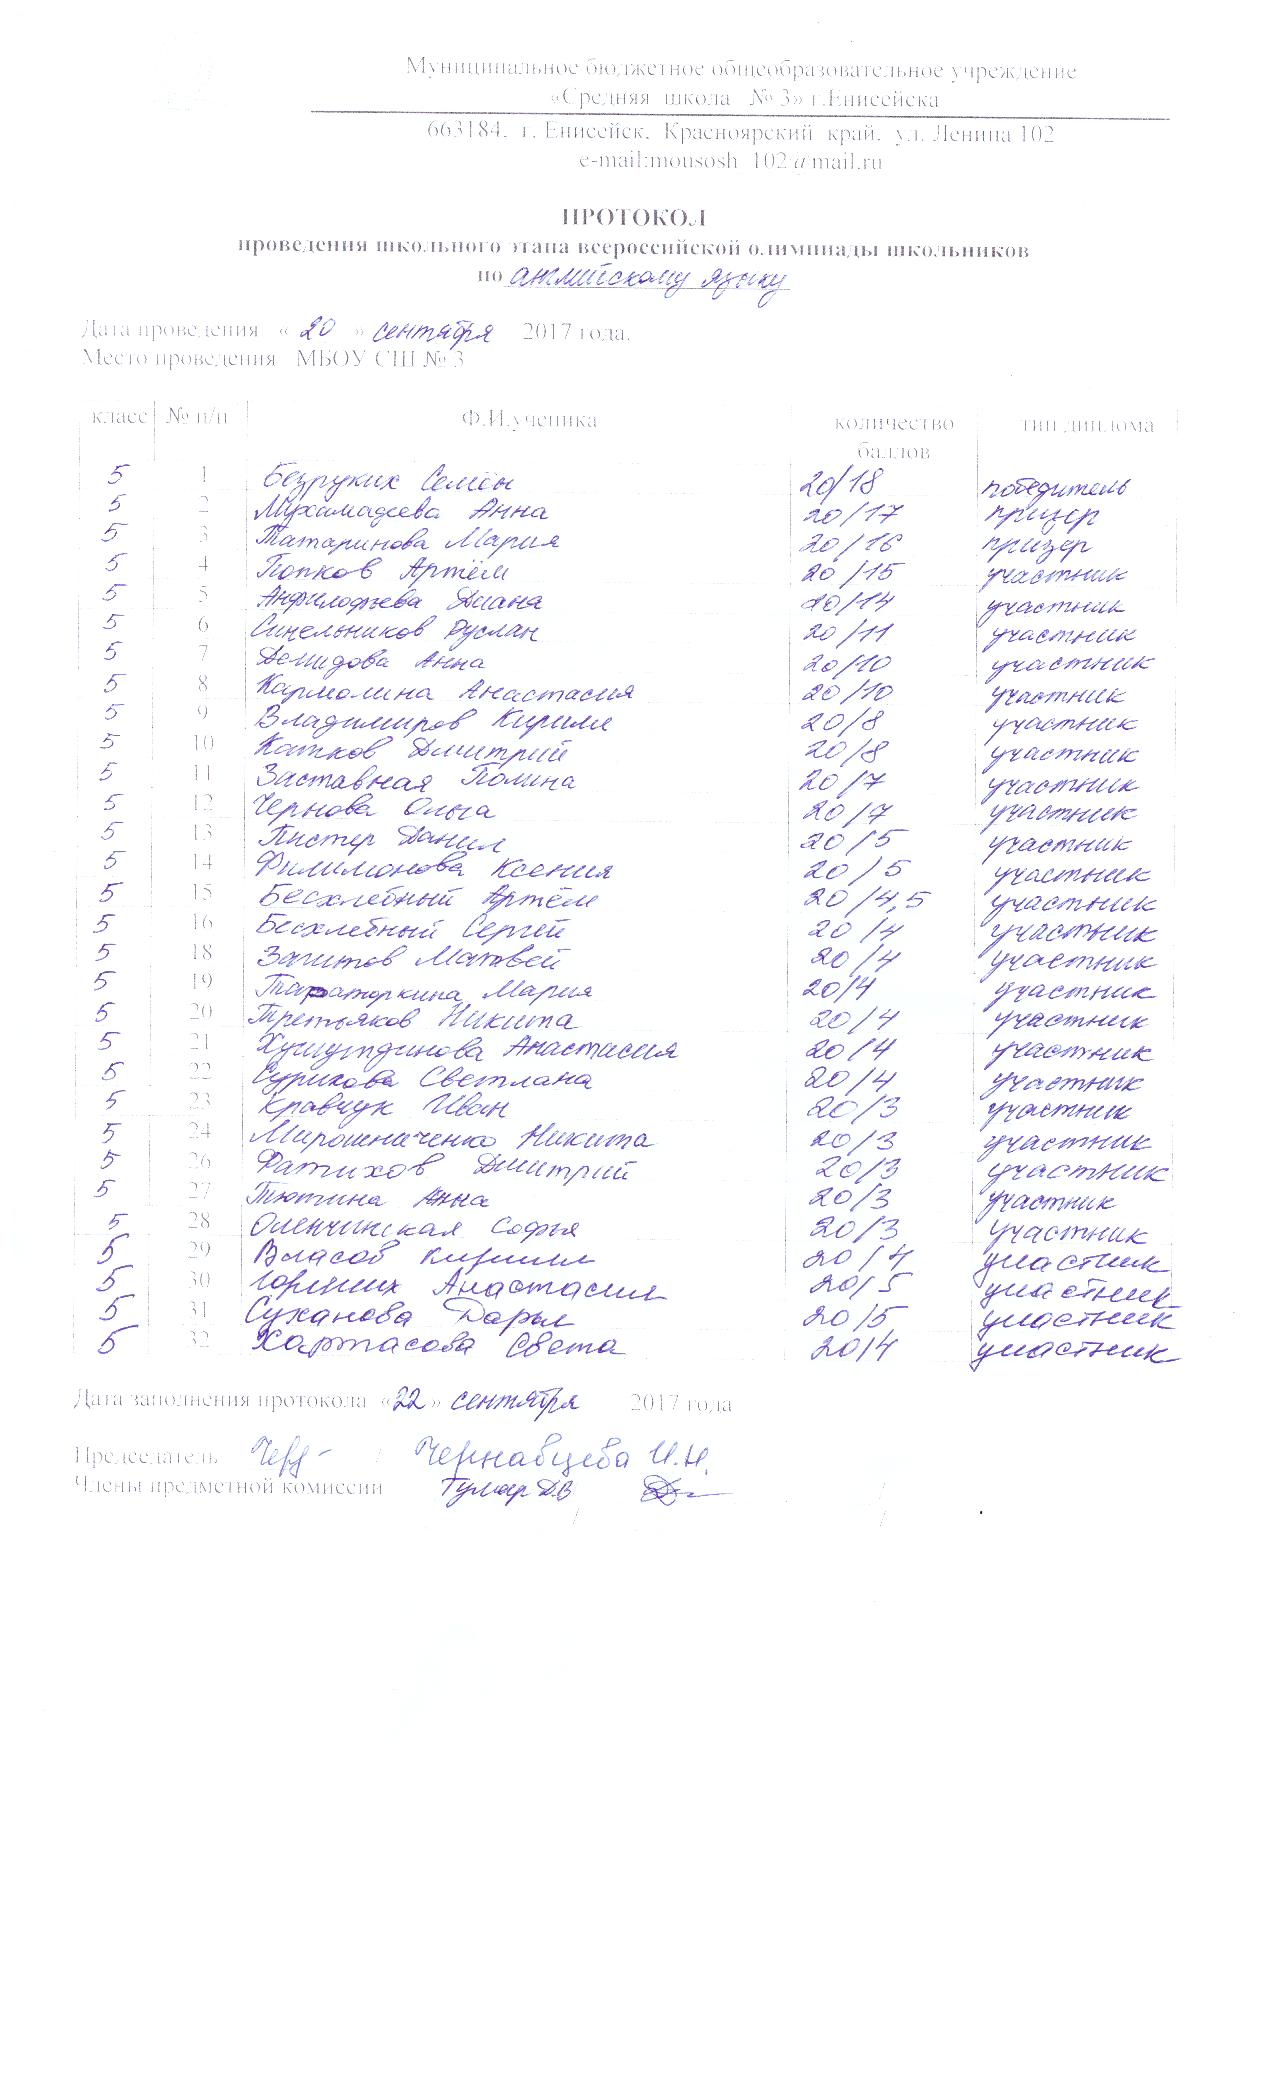 Муниципальное бюджетное общеобразовательное учреждение
«Средняя школа № 3» г.Енисейска
663184, г. Енисейск, Красноярский край, ул. Ленина 102
e-mail:mousosh_102@mail.ru
ПРОТОКОЛ
проведения школьного этапа всероссийской олимпиады школьников
по английскому языку
Дата проведения « 20 » сентября 2017 года.
Место проведения МБОУ СШ № 3
класс № п/п Ф.И.ученика количество баллов тип диплома
5 1 Безруких Семён 20/18 победитель
5 2 Мухамадеева Анна 20/17 призер
5 3 Татаринова Мария 20/16 призер
5 4 Попков Артём 20/15 участник
5 5 Анфилофьева Диана 20/14 участник
5 6 Синельников Руслан 20/11 участник
5 7 Демидова Анна 20/10 участник
5 8 Кармолина Анастасия 20/10 участник
5 9 Владимиров Кирилл 20/8 участник
5 10 Катков Дмитрий 20/8 участник
5 11 Заставная Полина 20/7 участник
5 12 Чернова Ольга 20/7 участник
5 13 Пистер Данил 20/5 участник
5 14 Филимонова Ксения 20/5 участник
5 15 Бесхлебный Артём 20/4,5 участник
5 16 Бесхлебный Сергей 20/4 участник
5 18 Загитов Матвей 20/4 участник
5 19 Тараторкина Мария 20/4 участник
5 20 Третьяков Никита 20/4 участник
5 21 Анастасия 20/4 участник
5 22 Сурикова Светлана 20/4 участник
5 23 Кравчук Иван 20/3 участник
5 24 Мирошниченко Никита 20/3 участник
5 26 Фатихов Дмитрий 20/3 участник
5 27 Тютина Анна 20/3 участник
5 28 Оленчинская Софья 20/3 участник
5 29 Власов Кирилл 20/4 участник
5 30 Анастасия 20/5 участник
5 31 Суханова Дарья 20/5 участник
5 32 Хартасова Света 20/4 участник
Дата заполнения протокола «22» сентября 2017 года
Председатель / Чернавцева И.Н.
Члены предметной комиссии Тумар Д.В